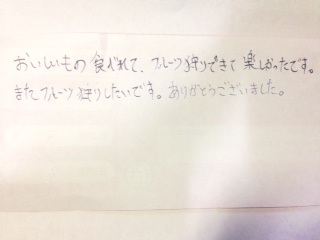 おいしいもの食べれて、フルーツ狩りできて楽しかったです。
またフルーツ狩りしたいです。ありがとうございました。